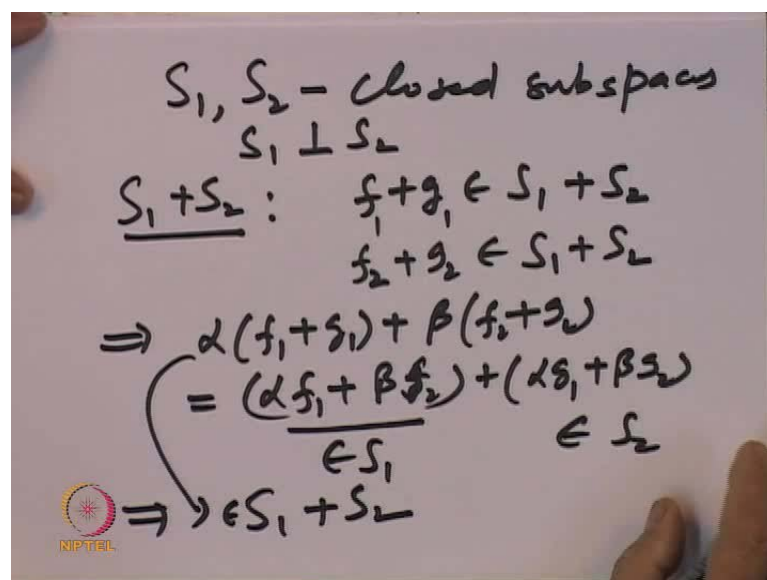 S₁, S₂ - closed subspaces
S₁ ⊥ S₂
S₁ + S₂ : f₁ + g₁ ∈ S₁ + S₂
f₂ + g₂ ∈ S₁ + S₂
⇒ α(f₁ + g₁) + β(f₂ + g₂)
= (αf₁ + βf₂) + (αg₁ + βg₂)
∈ S₁ ∈ S₂
⇒ ∈ S₁ + S₂
NPTEL